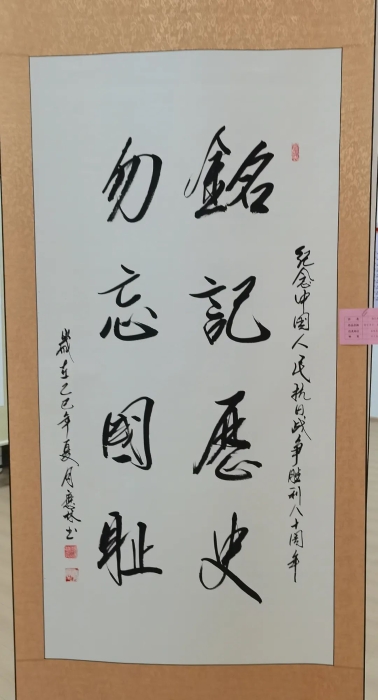 紀念中國人民抗日战争胜利八十周年
銘記歷史
勿忘國耻
歲在乙巳年夏月應林书